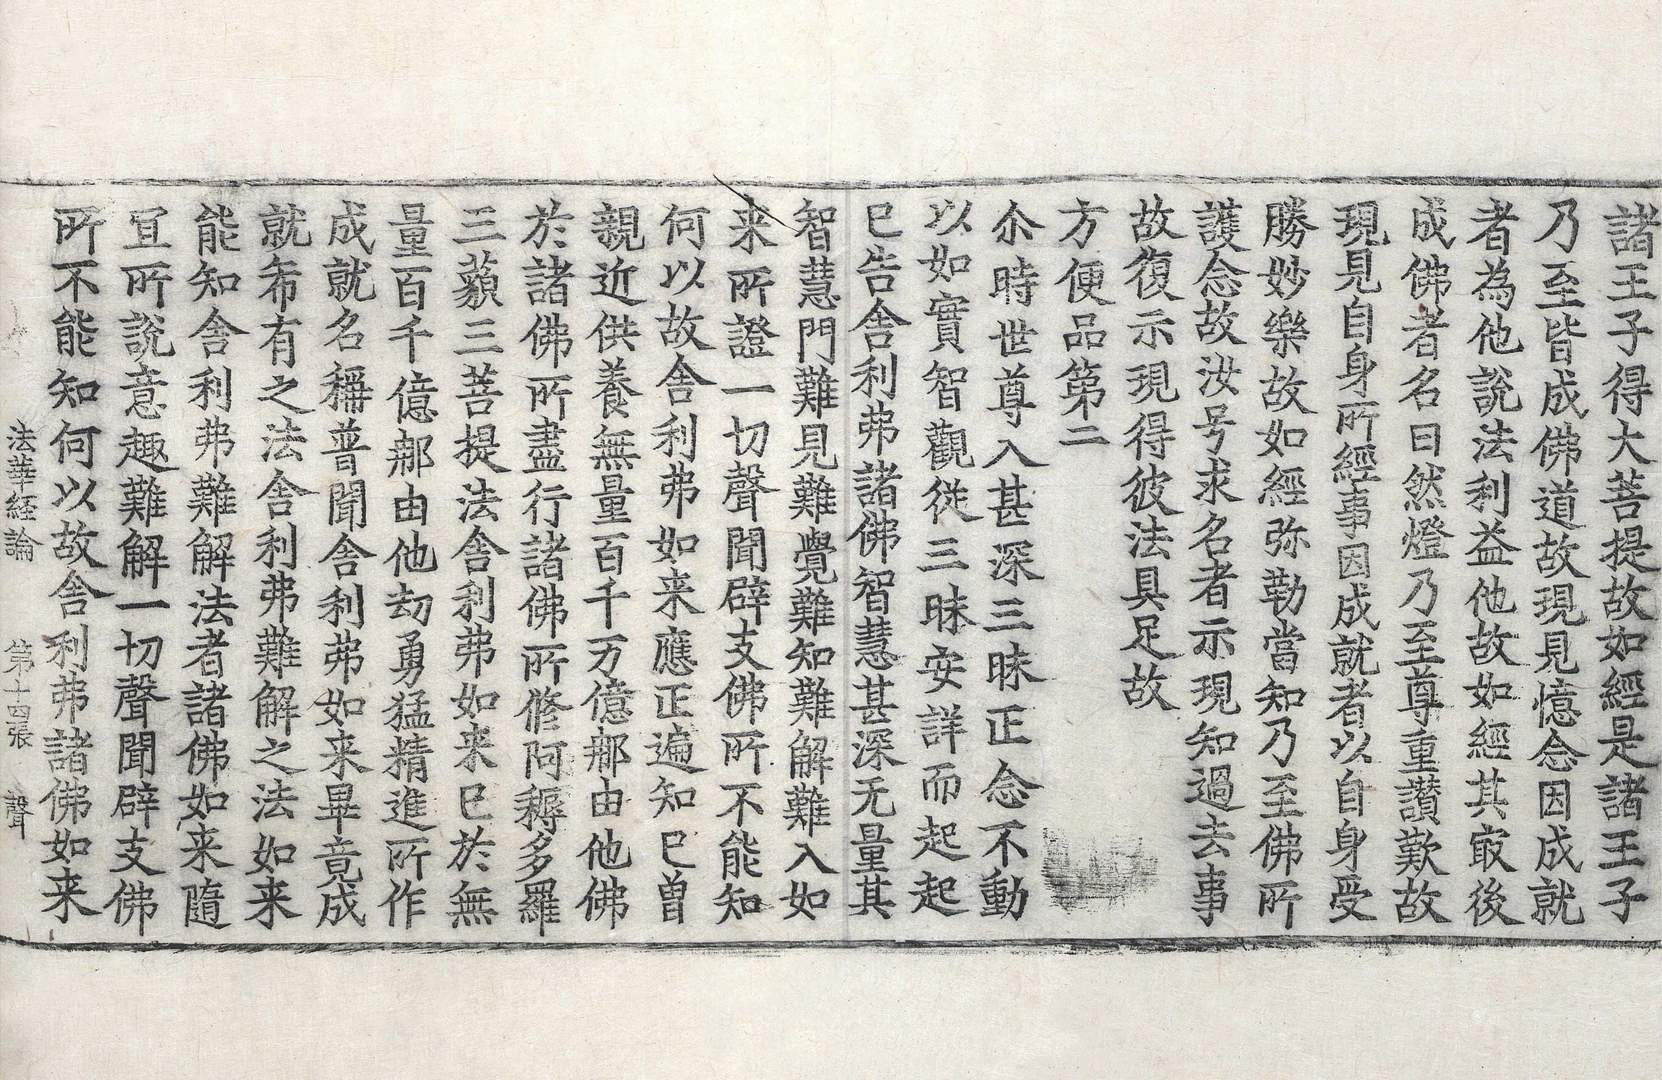 諸王子得大菩提故如經是諸王子
乃至皆成佛道故現見憶念因成就
者為他說法利益他故如經其㝡後
成佛者名曰然燈乃至尊重讃歎故
現見自身所經事因成就者以自身受
勝妙樂故如經弥勒當知乃至佛所
護念故汝号求名者示現知過去事
故復示現得彼法具足故
方便品第二
尒時世尊入甚深三昧正念不動
以如實智觀從三昧安詳而起起
已告舍利弗諸佛智慧甚深无量其
智慧門難見難覺難知難解難入如
来所證一切聲聞辟支佛所不能知
何以故舍利弗如来應正遍知已曾
親近供養無量百千万億那由他佛
於諸佛所盡行諸佛所修阿耨多羅
三藐三菩提法舍利弗如来已於無
量百千億那由他劫勇猛精進所作
成就名稱普聞舍利弗如来畢竟成
就希有之法舍利弗難解之法如来
能知舍利弗難解法者諸佛如来隨
冝所說意趣難解一切聲聞辟支佛
所不能知何以故舍利弗諸佛如来
法華經論 第十四張 聲